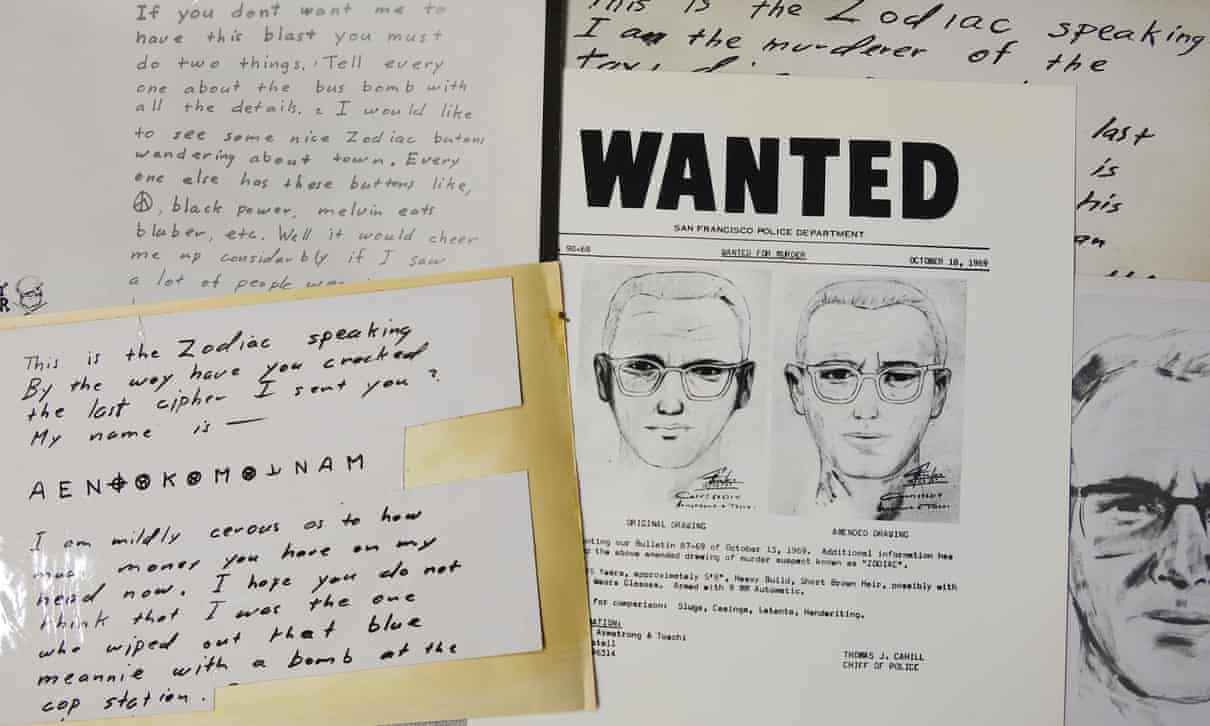 If you dont want me to
have this blast you must
do two things. Tell every
one about the bus bomb with
all the details. 2 I would like
to see some nice Zodiac butons
wandering about town. Every
one else has these buttons like,
, black power, melvin eats
bluber, etc. Well it would cheer
me up considerbly if I saw
a lot of people
This is the Zodiac speaking
I am the murderer of the
last
is
his
an
This is the Zodiac speaking
By the way have you cracked
the last cipher I sent you?
My name is —
A E N ⌖ ⊗ K ⊗ M ⊗ ⅃ N A M
I am mildly cerous as to how
much money you have on my
head now. I hope you do not
think that I was the one
who wiped out that blue
meannie with a bomb at the
cop station.
WANTED
SAN FRANCISCO POLICE DEPARTMENT
90-69 WANTED FOR MURDER OCTOBER 18, 1969
ORIGINAL DRAWING AMENDED DRAWING
our Bulletin 87-69 of October 13, 1969. Additional information has
the above amended drawing of murder suspect known as "ZODIAC".
Years, approximately 5'8", Heavy Build, Short Brown Hair, possibly with
Wears Glasses. Armed with 9 MM Automatic.
for comparison: Slugs, Casings, Latents, Handwriting.
Armstrong & Toschi
THOMAS J. CAHILL
CHIEF OF POLICE